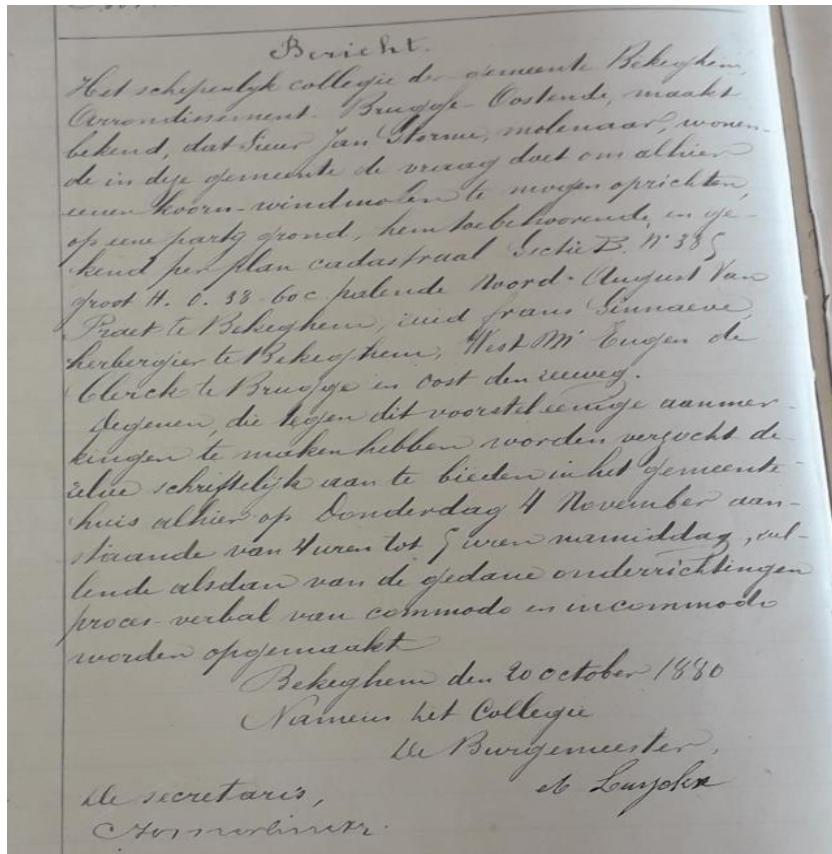 Bericht.
Het schepenlyk collegie der gemeente Bekeghem,
Arrondissement Brugge-Oostende, maakt
bekend, dat Sieur Jan Storme, molenaar, wonen-
de in dye gemeente de vraag doet om alhier
eenen koorn-windmolen te mogen oprichten,
op eene party grond, hem toebehoorende, en ge-
kend per plan cadastraal Sectie B. N° 385
groot H. 0. 38-60 c palende Noord-August Van
Praet te Bekeghem, zuid frans Ginnaeve,
herbergier te Bekeghem, West Mr Eugen de
Clerck te Brugge en oost den zeeweg.
Degenen, die tegen dit voorstel eenige aanmer-
kingen te maken hebben worden verzocht de-
zelve schriftelijk aan te bieden in het gemeente-
huis alhier op Donderdag 4 November aan-
staande van 4 uren tot 5 uren namiddag, zul-
lende alsdan van de gedane onderrichtingen
proces-verbal van commodo en incommodo
worden opgemaakt
Bekeghem den 20 october 1880
Namens het Collegie
De Burgemeester,
De secretaris,